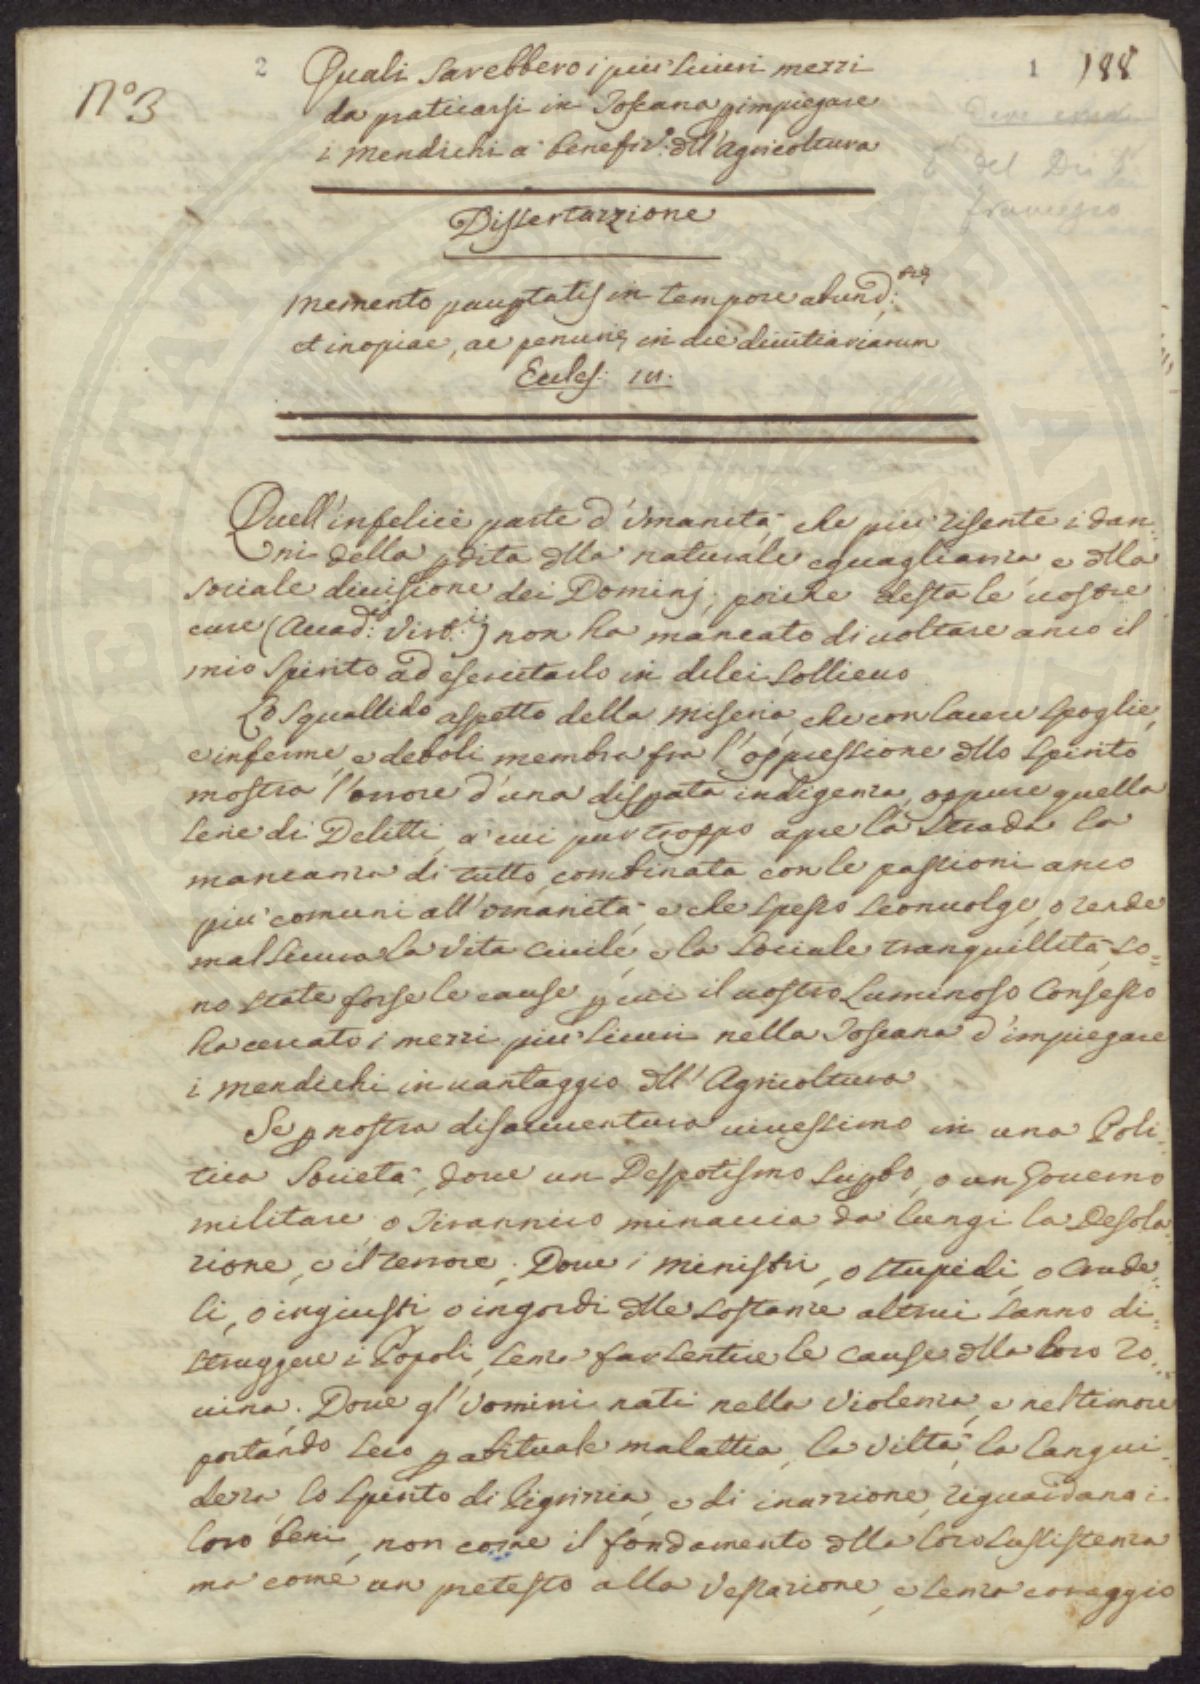 2
1 188
N.o 3
Quali sarebbero i più sicuri mezzi
da praticarsi in Toscana p impiegare
i mendichi a benefiz.o dll'Agricoltura
Dissertazzione
Memento pauptatis in tempore abund:
et inopiae, ac penurie, in die divitiariarum
Eccles: 
Quell'infelice parte d'Umanità, che più risente i dan=
ni della pdita dlla naturale eguaglianza, e dlla
sociale divisione dei Dominj, poiche desta le vostre
cure (Accad:ci Virt:i) non ha mancato di voltare anco il
mio Spirito ad esercitarlo in dilei Sollievo
Lo squallido aspetto della miseria, che con lacere spoglie,
e inferme, e deboli membra fra l'oppressione dllo Spirito
mostra l'orrore d'una dispata indigenza, oppure quella
serie di Delitti, a cui pur troppo apre la strada la
mancanza di tutto, combinata con le passioni anco
più comuni all'Umanità, e che spesso sconvolge, o rende
mal sicura la Vita Civile, e la Sociale tranquillità, so=
no state forse le cause p cui il vostro Luminoso Consesso
ha cercato i mezzi più sicuri nella Toscana d'impiegare
i mendichi in vantaggio dll'Agricoltura
Se p nostra disavventura vivessimo in una Poli=
tica Società, dove un Despotismo supbo, o un Governo
militare, o Tirannico minaccia da lungi la Desola=
zione, e il terrore; Dove i Ministri, o stupidi, o Crude=
li, o ingiusti, o ingordi dlle sostanze altrui sanno di=
struggere i Popoli, senza far sentire le cause dlla loro ro=
vina; Dove gl'Uomini nati nella Violenza, e nel timore
portando seco p abituale malattia, la Viltà, la langui=
dezza, lo Spirito di Pigrizzia, e di inazzione, riguardano i
loro beni, non come il fondamento dlla loro sussistenza
ma come un pretesto alla Vessazione, e senza coraggio